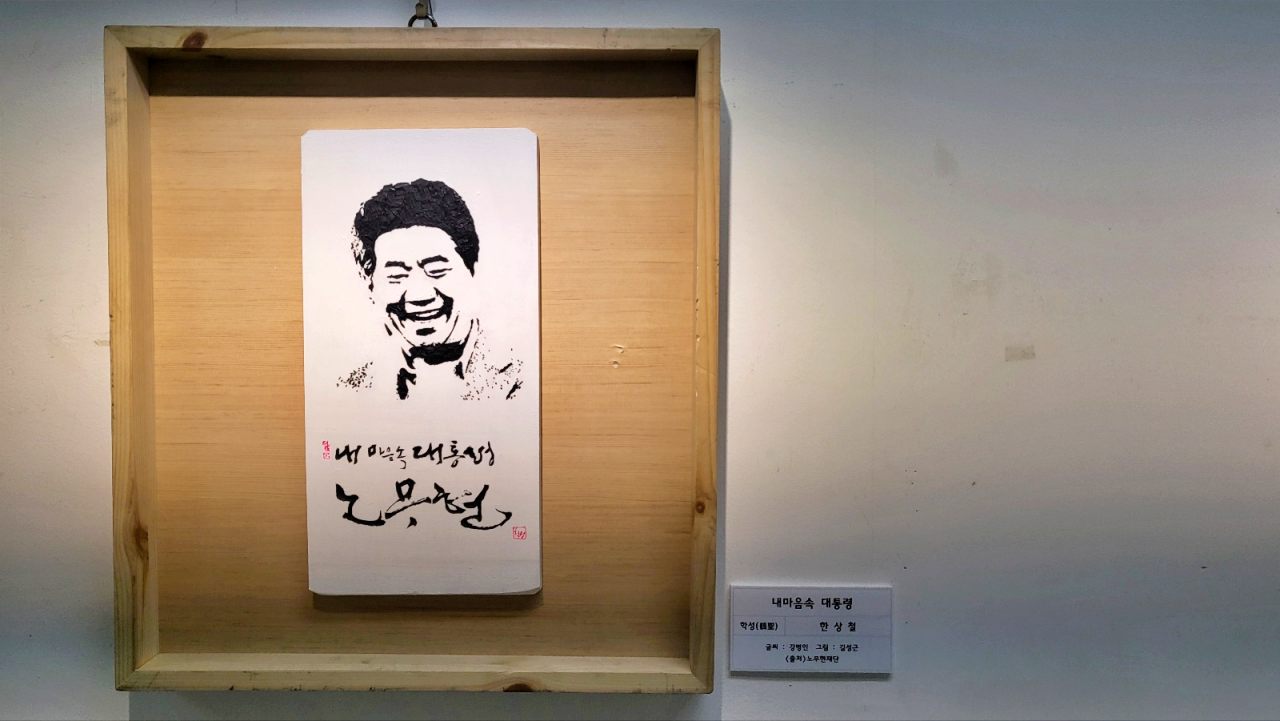 내 마음속 대통령
노무현
내마음속 대통령
학성(鶴聖) 한 상 철
글씨 : 강병인 그림 : 김성근
(출처)노무현재단